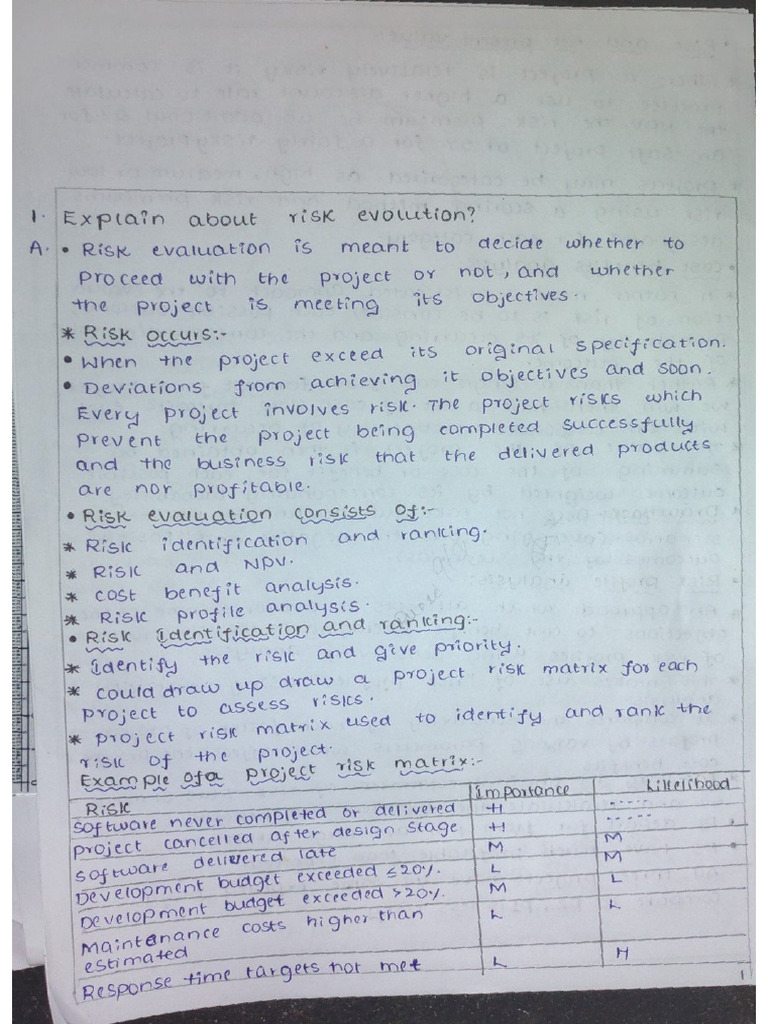 1. Explain about risk evolution?
A. • Risk evaluation is meant to decide whether to
proceed with the project or not, and whether
the project is meeting its objectives.
* Risk occurs:-
• When the project exceed its original specification.
• Deviations from achieving it objectives and soon.
Every project involves risk. The project risks which
prevent the project being completed successfully
and the business risk that the delivered products
are nor profitable.
• Risk evaluation consists of:-
* Risk identification and ranking.
* Risk and NPV.
* cost benefit analysis.
* Risk profile analysis.
• Risk identification and ranking:-
* Identify the risk and give priority.
* could draw up draw a project risk matrix for each
project to assess risks.
* project risk matrix used to identify and rank the
risk of the project.
Example of a project risk matrix:-
Risk Importance Likelihood
Software never completed or delivered H -----
project cancelled after design stage H -----
software delivered late M M
Development budget exceeded ≤20%. L M
Development budget exceeded >20%. M L
Maintenance costs higher than L L
estimated
Response time targets not met L H
1